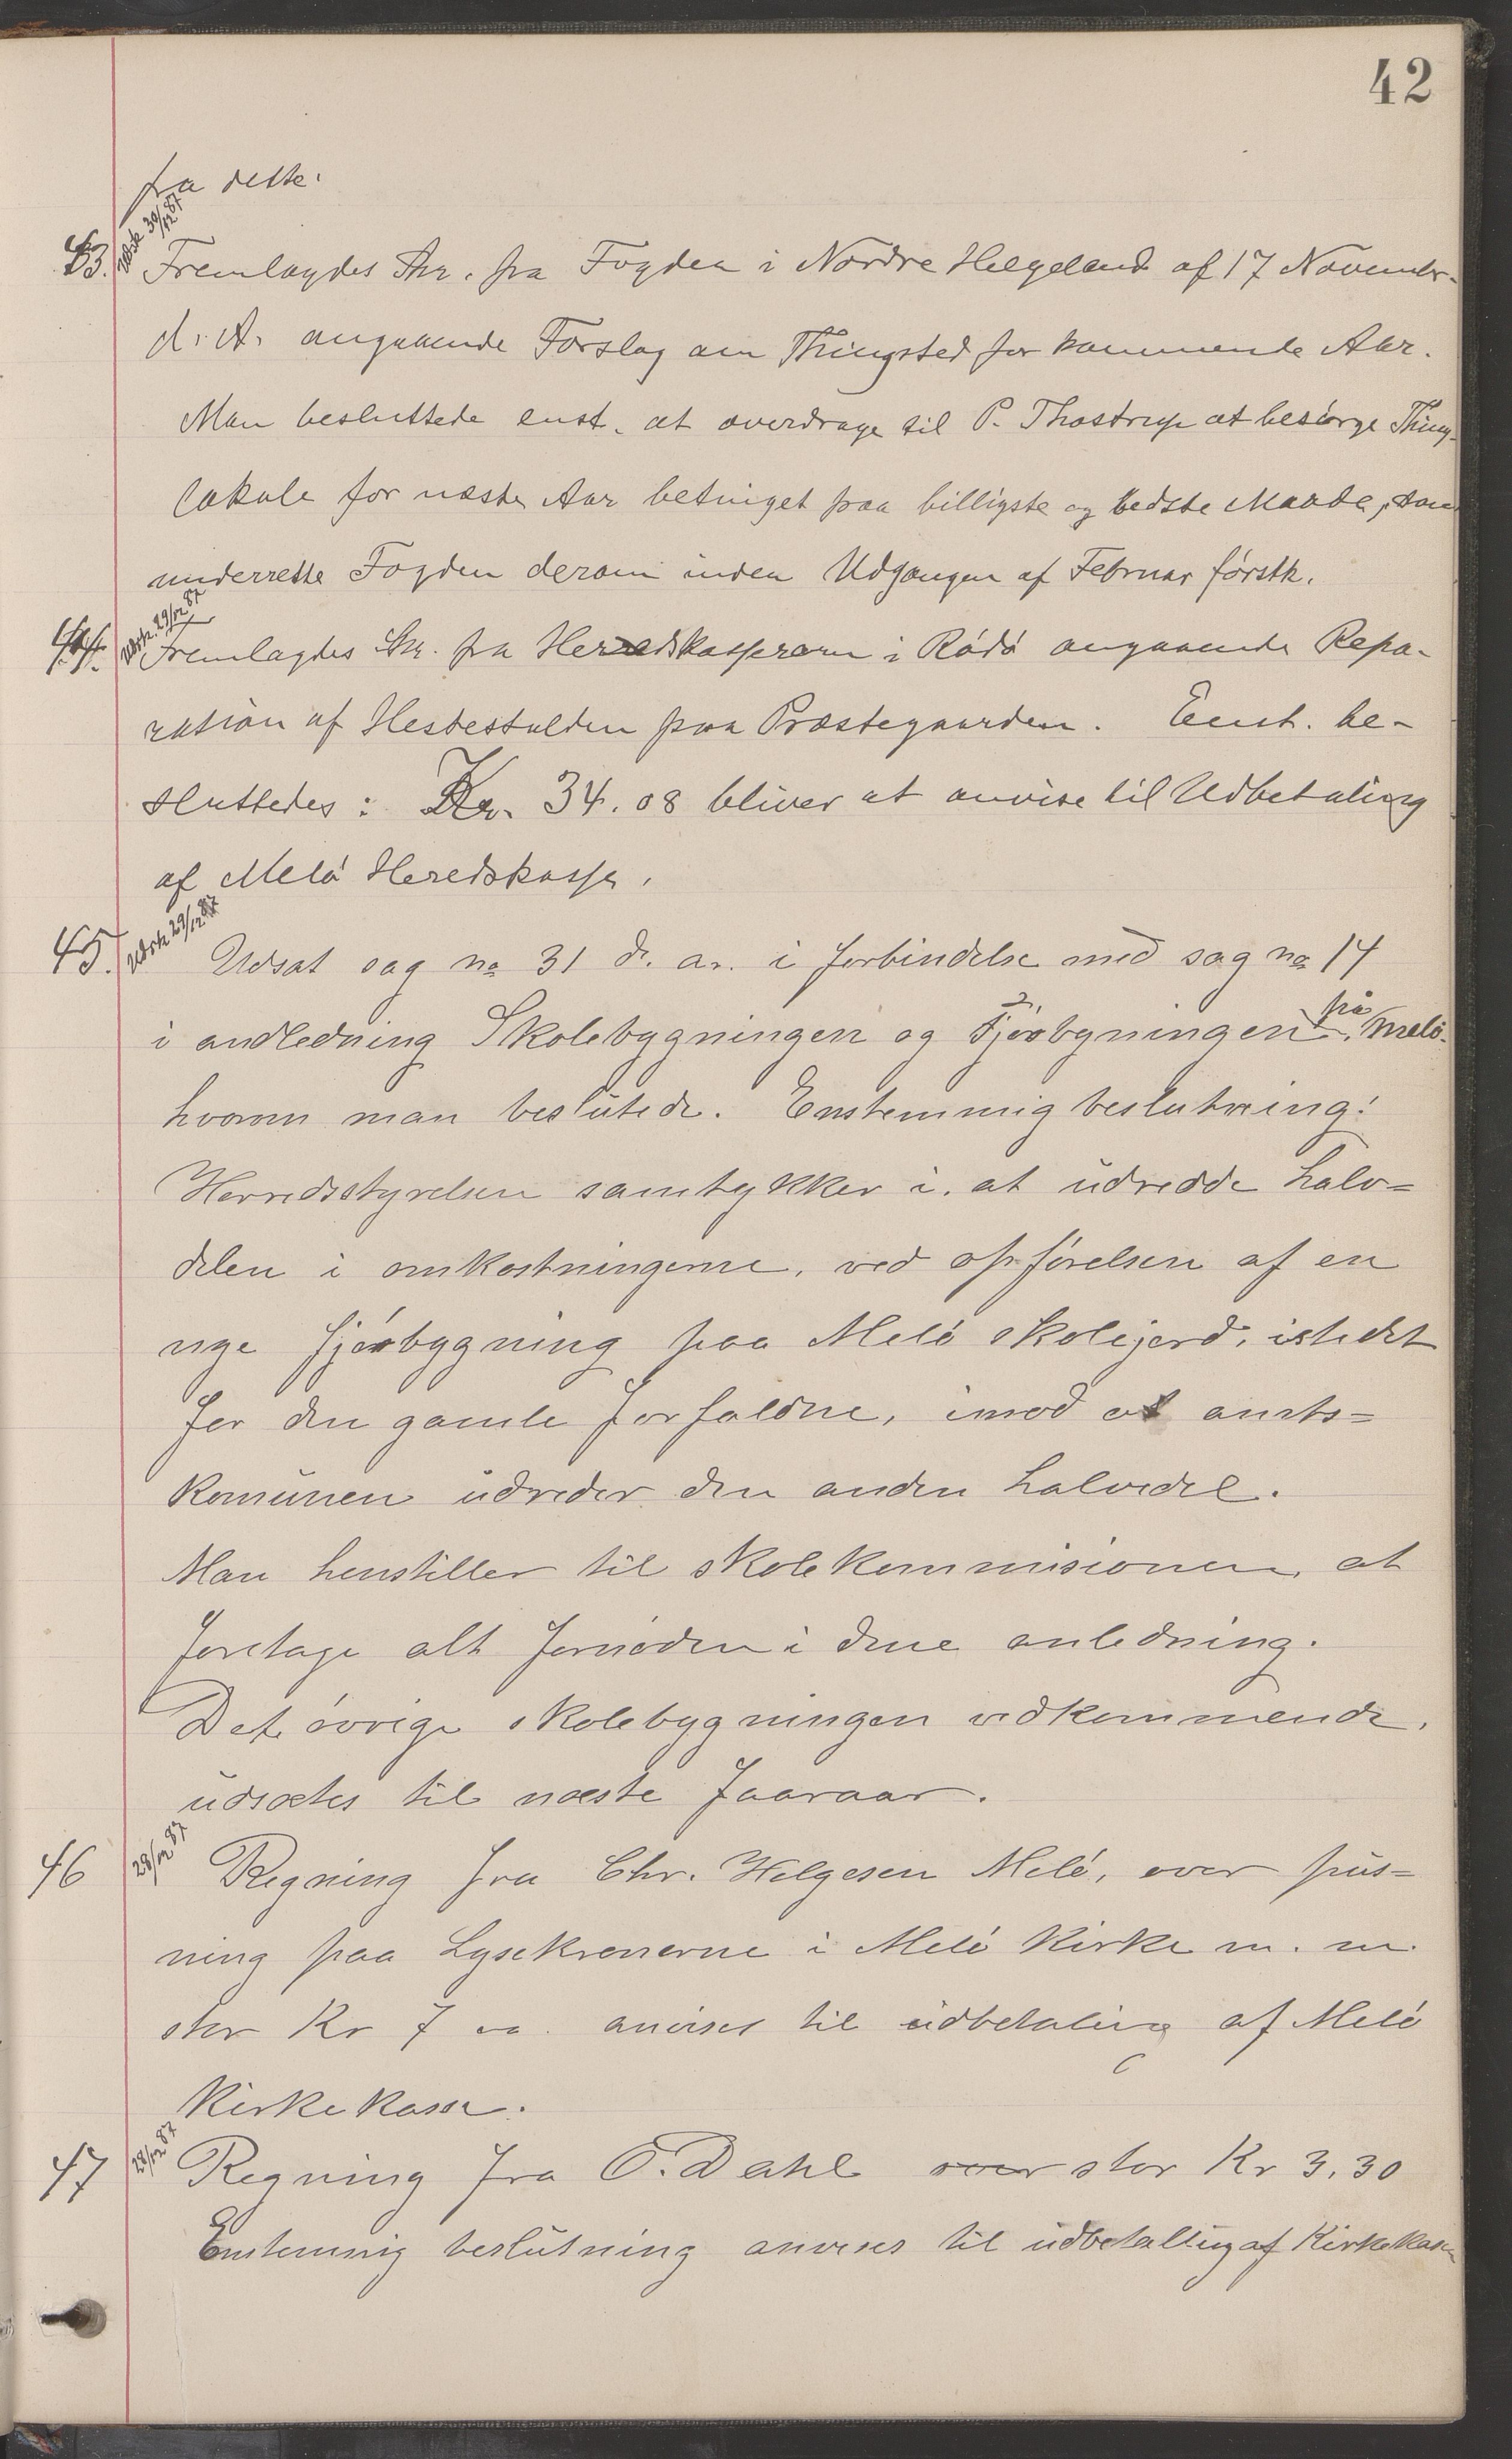 42
fra dette.
43. Udsk. 30/12 87 Fremlagdes Skr. fra Fogden i Nordre Helgeland af 17 November
d. A. angaaende Forslag om Thingsted for kommende Aar.
Man besluttede enst. at overdrage til P. Thostrup at besørge Thing-
lokale for næste Aar betinget paa billigste og bedste Maade, samt
underrette Fogden derom inden Udgangen af Februar førstk.
44. Udsk. 29/12 87 Fremlagdes Skr. fra Heredskassereren i Rødø angaaende Repa-
ration af Hestestalden paa Præstegaarden. Enst. be-
sluttedes: Kr. 34.08 bliver at anvise til Udbetaling
af Melø Heredskasse.
45. Udsk 29/12 87 Udsat sag no 31 d. a. i forbindelse med sag no 14
i andledning Skolebygningen og Fjøsbygningen på Melø.
hvorom man beslutede. Enstemmig beslutning:
Herredsstyrelsen samtykker i. at udredde halv=
delen i omkostningerne, ved opførelsen af en
nye fjøsbygning paa Melø skolejord, istedet
for den gamle forfaldne, imod at amts=
komunen udreder den anden halvedel.
Man henstiller til skolekommisionen, at
foretage alt fornøden i dene anledning.
Det øvrige skolebygningen vedkommende,
udsætes til næste Faaraar.
46 28/12 87 Regning fra Chr. Helgesen Melø, over pus=
ning paa Lysekronerne i Melø Kirke m. m.
stor Kr 7 00. anvises til udbetaling af Melø
Kirkekasse.
47 28/12 87 Regning fra O. Dahl over stor Kr 3,30
Enstemmig beslutning anvises til udbetalling af Kirkekasse